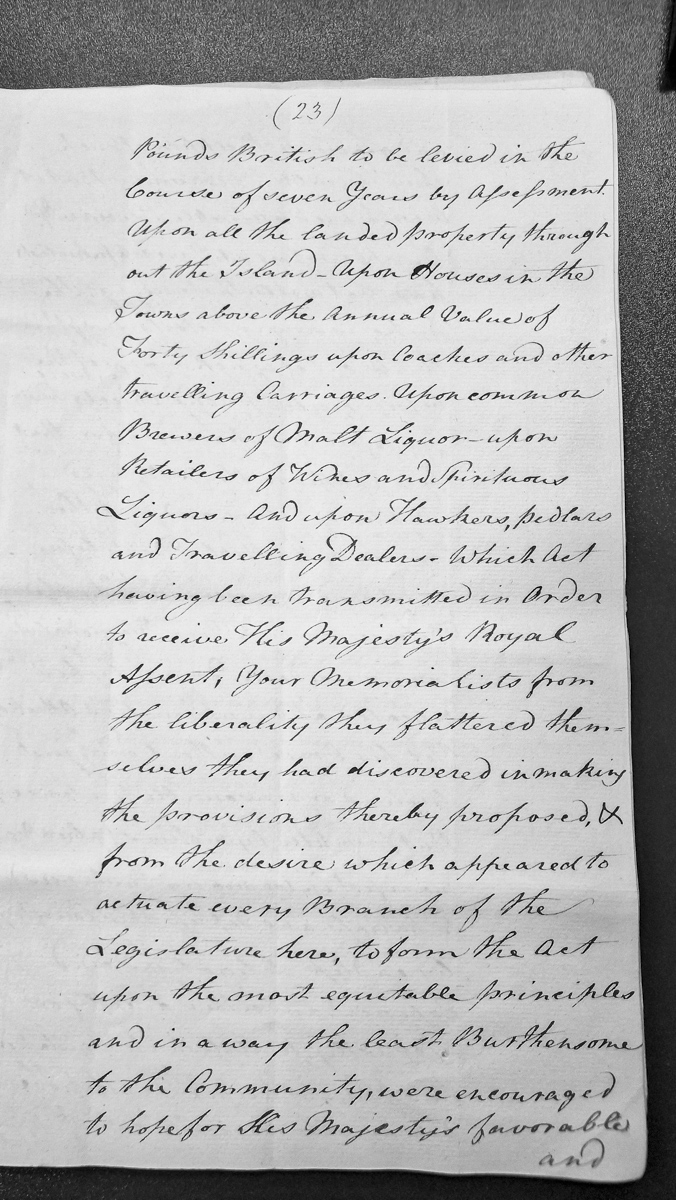 (23)
Pounds British to be levied in the
Course of seven Years by Assessment.
Upon all the landed property through
out the Island - Upon Houses in the
Towns above the Annual Value of
Forty Shillings upon Coaches and other
travelling Carriages. Upon common
Brewers of Malt Liquor - upon
Retailers of Wines and Spirituous
Liquors - And upon Hawkers, pedlars
and Travelling Dealers - Which Act
having been transmitted in Order
to receive His Majesty's Royal
Assent, Your Memorialists from
the liberality they flattered them=
selves they had discovered in making
the provisions thereby proposed, &
from the desire which appeared to
actuate every Branch of the
Legislature here, to form the Act
upon the most equitable principles
and in a way the least Burthensome
to the Community, were encouraged
to hope for His Majesty's favorable
and